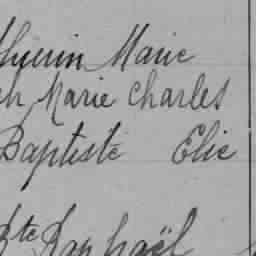 Guerin Marie
Marie Charles
Baptiste Elie
Bte Raphaël